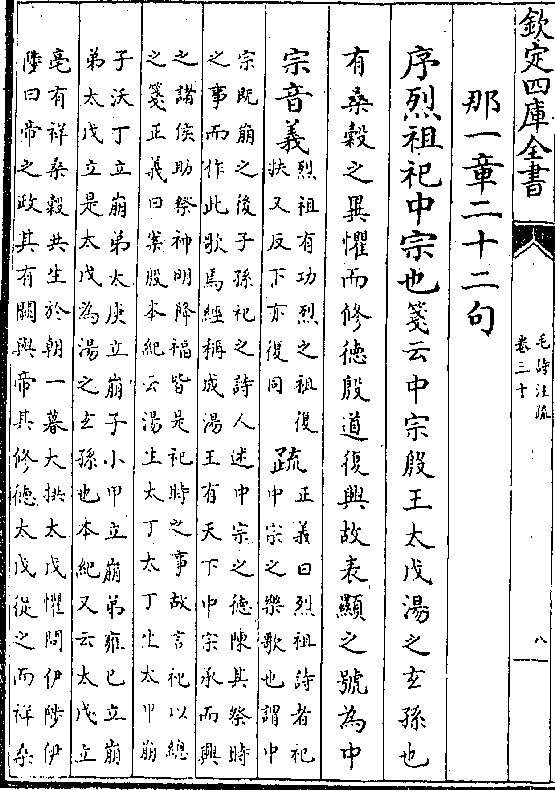 欽定四庫全書
毛詩注疏
卷三十
八
那一章二十二句
序烈祖祀中宗也箋云中宗殷王太戊湯之玄孫也
有桑穀之異懼而修德殷道復興故表顯之號為中
宗音義
烈祖有功烈之祖復
扶又反下亦復同
疏
正義曰烈祖詩者祀
中宗之樂歌也謂中
宗既崩之後子孫祀之詩人述中宗之德陳其祭時
之事而作此歌焉經稱成湯王有天下中宗承而興
之諸侯助祭神明降福皆是祀時之事故言祀以總
之箋正義曰案殷本紀云湯生太丁太丁生太甲崩
子沃丁立崩弟太庚立崩子小甲立崩弟雍已立崩
弟太戊立是太戊為湯之玄孫也本紀又云太戊立
亳有祥桑穀共生於朝一暮大拱太戊懼問伊陟伊
陟曰帝之政其有闕與帝其修德太戊從之而祥桑